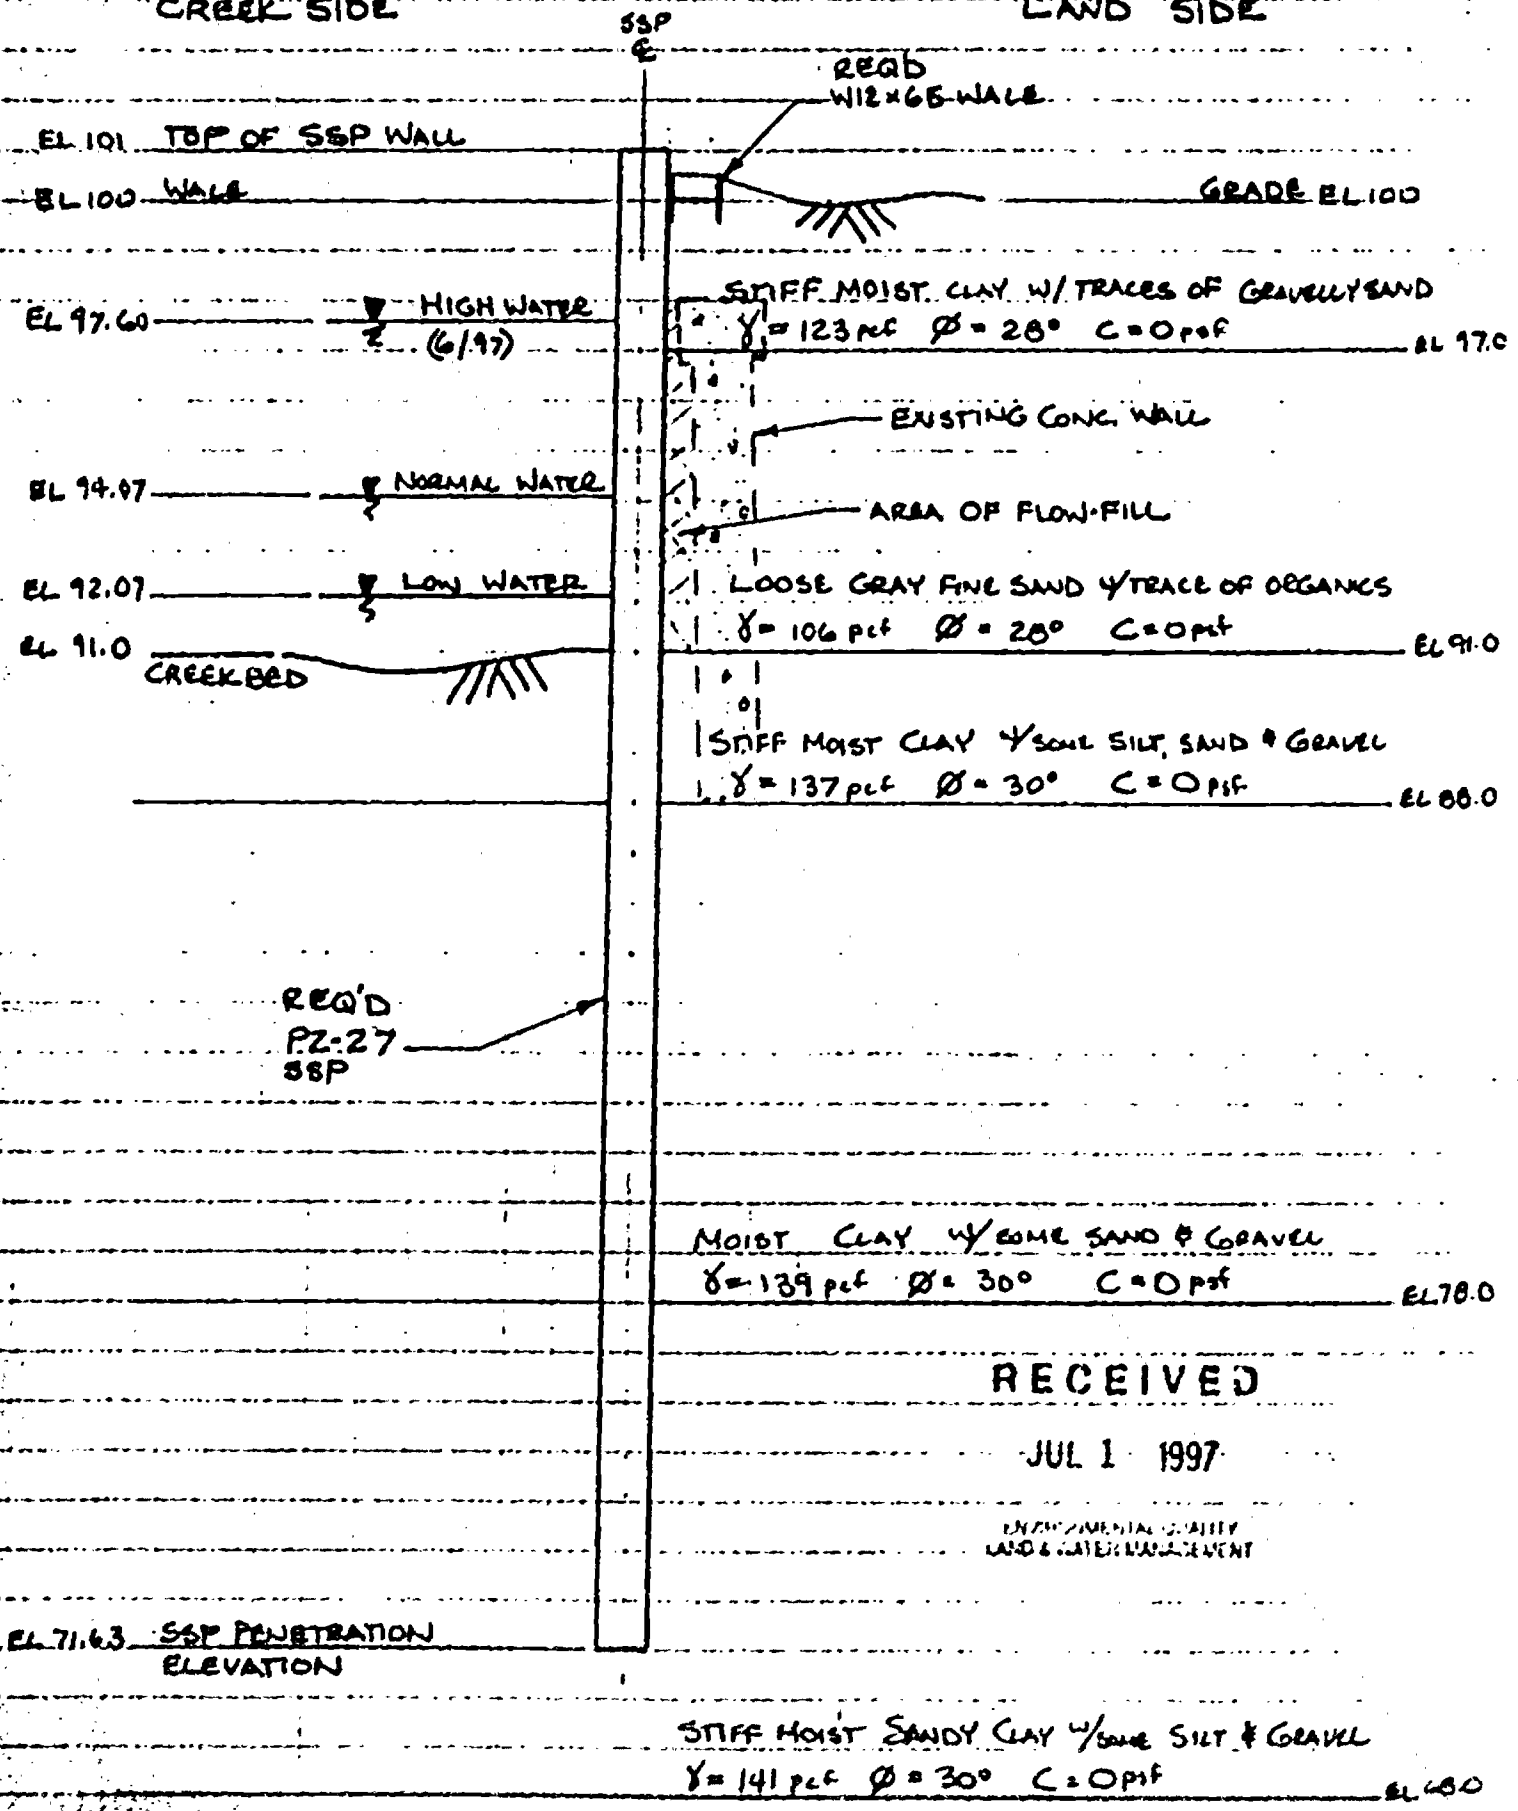 CREEK SIDE
LAND SIDE
SSP
℄
REQD
W12x65 WALE
EL 101 TOP OF SSP WALL
EL 100 WALE
GRADE EL 100
STIFF MOIST CLAY W/ TRACES OF GRAVELLY SAND
EL 97.60
HIGH WATER
(6/97)
γ = 123 pcf Ø = 28° C = 0 psf
EL 97.0
EXISTING CONC. WALL
EL 94.07
NORMAL WATER
AREA OF FLOW-FILL
EL 92.07
LOW WATER
LOOSE GRAY FINE SAND W/ TRACE OF ORGANICS
γ = 106 pcf Ø = 28° C = 0 psf
EL 91.0
EL 91.0
CREEK BED
STIFF MOIST CLAY W/ SOME SILT, SAND & GRAVEL
γ = 137 pcf Ø = 30° C = 0 psf
EL 88.0
REQ'D
PZ-27
SSP
MOIST CLAY W/ SOME SAND & GRAVEL
γ = 139 pcf Ø = 30° C = 0 psf
EL 78.0
RECEIVED
JUL 1 1997
ENVIRONMENTAL QUALITY
LAND & WATER MANAGEMENT
EL 71.63 SSP PENETRATION
ELEVATION
STIFF MOIST SANDY CLAY W/ SOME SILT & GRAVEL
γ = 141 pcf Ø = 30° C = 0 psf
EL 68.0